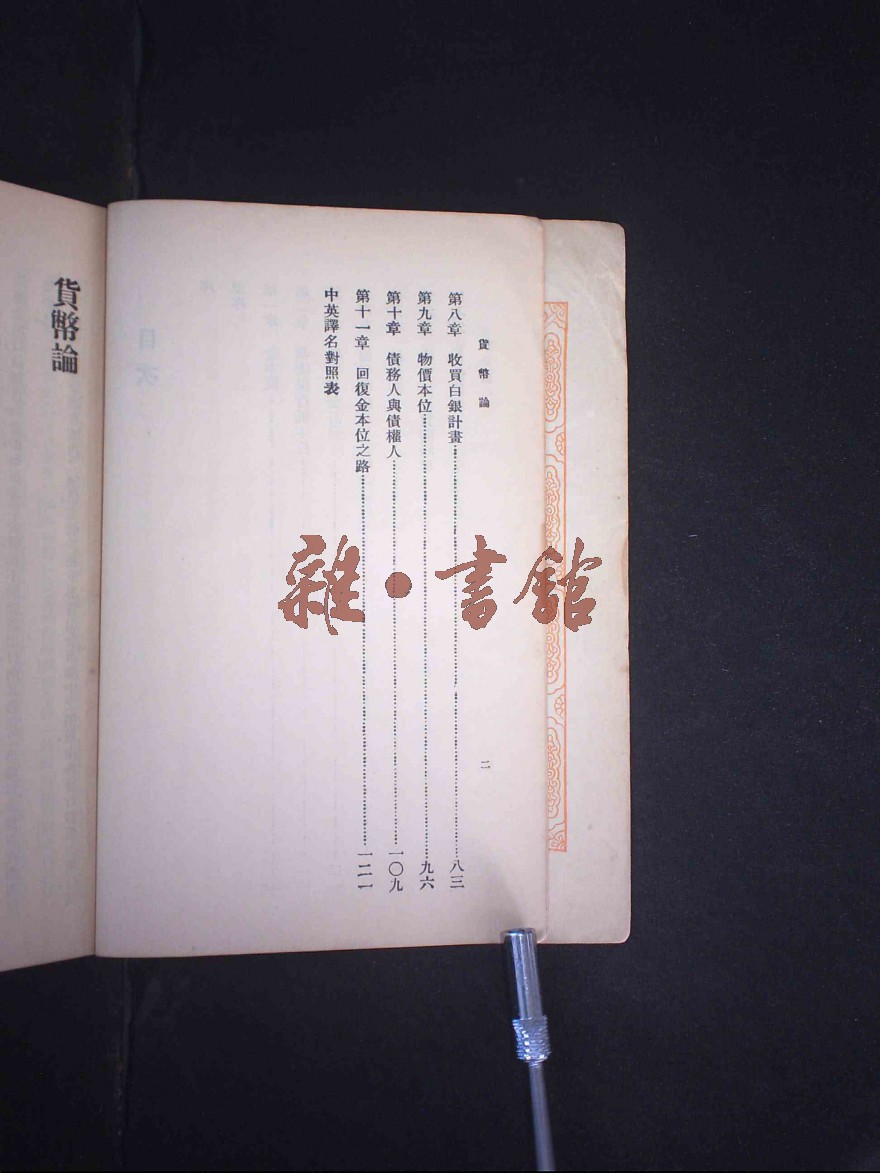 貨幣論
二
第八章　收買白銀計畫……八三
第九章　物價本位……九六
第十章　債務人與債權人……一〇九
第十一章　回復金本位之路……一二一
中英譯名對照表
貨幣論
雜·書館